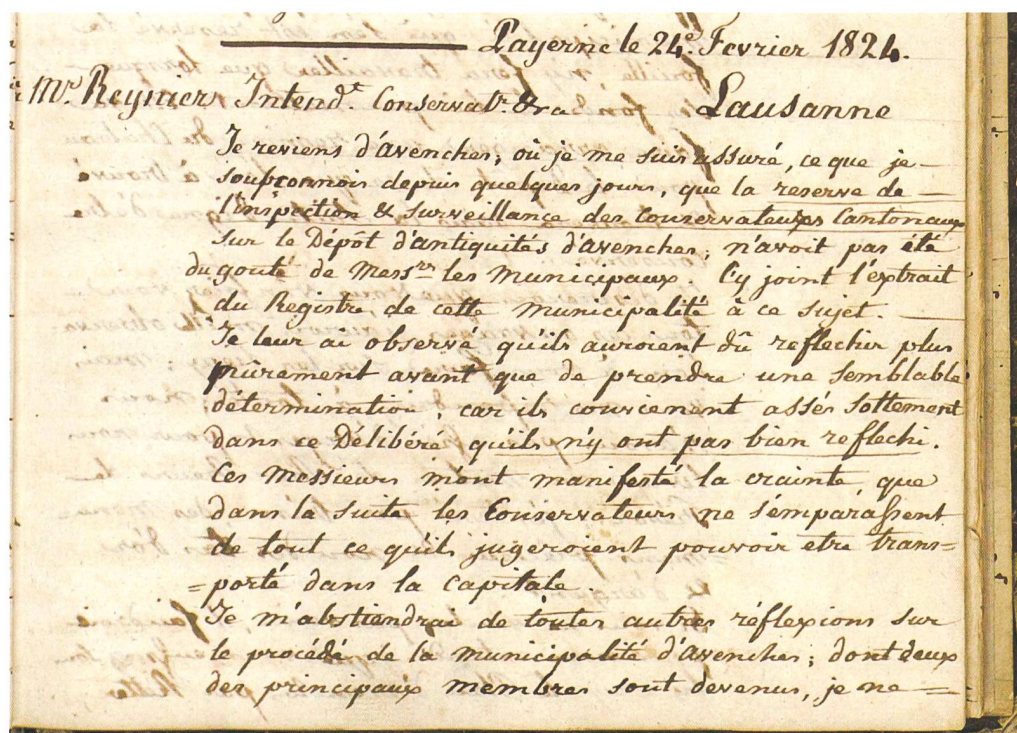 Payerne le 24e. Fevrier 1824.
Mr. Reynier Intendt. Conservatr. &ra Lausanne
Je reviens d'avenches, où je me suis assuré, ce que je
soupçonnois depuis quelques jours, que la reserve de
l'inspection & surveillance des Conservateurs Cantonaux
sur le Dépôt d'antiquités d'avenches, n'avoit pas été
du goûté de Messrs les Municipaux. Cy joint l'extrait
du Registre de cette Municipalité à ce sujet.
Je leur ai observé qu'ils auroient dû reflechir plus
murement avant que de prendre une semblable
détermination, car ils conviennent assés sottement
dans ce Délibéré qu'ils n'y ont pas bien reflechi.
Ces Messieurs m'ont manifesté la crainte que
dans la suite les Conservateurs ne s'emparassent
de tout ce qu'ils jugeroient pouvoir etre trans=
=porté dans la Capitale.
Je m'abstiendrai de toutes autres réflexions sur
le procédé de la Municipalité d'avenches; dont deux
des principaux membres sont devenus, je ne